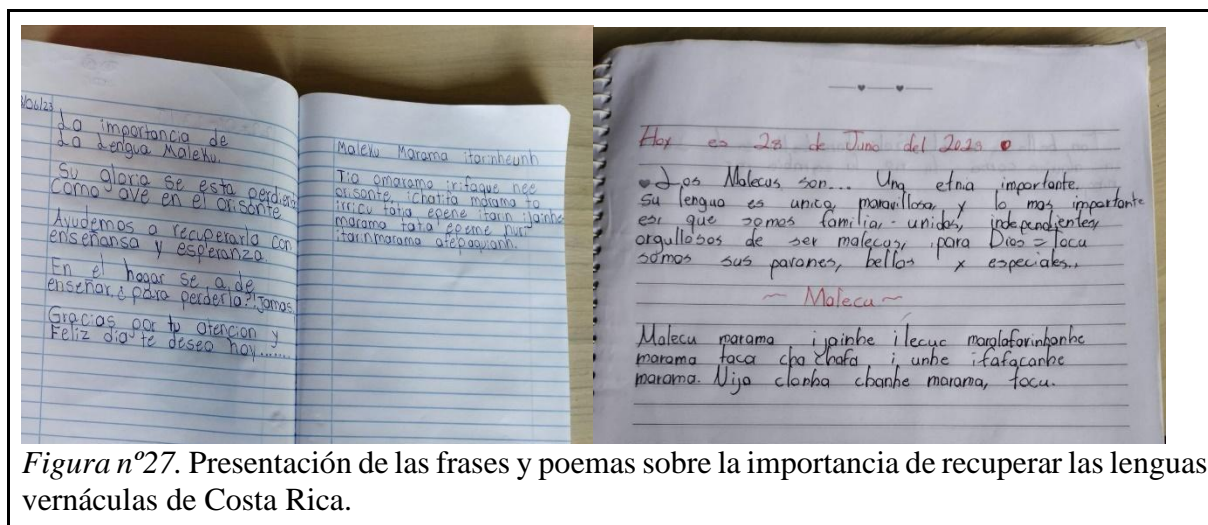 /06/23
La importancia de
La Lengua Maleku.
Su gloria se esta perdiendo
Como ave en el orisonte
Ayudemos a recuperarla con
enseñansa y esperanza.
En el hogar se a de
enseñar ¿para perderla?¡Jamas
Gracias por tu atencion y
Feliz dia te deseo hoy.......
Maleku Marama itarinheunh
Tia amarama irifaque nee
orisonte, ichatita marama to
irricu tatia epene itarin ijainhe
marama tatia epeme nuri
itarinmarama afepaquianh.
Hoy es 28 de Juno del 2023
Los Malecus son... Una etnia importante.
Su lengua es unica, maravillosa, y lo mas importante
es: que somos familia unidos, independientes,
orgullosos de ser malecus, para Dios = Tocu
somos sus pavones, bellos y especiales..
~ Malecu ~
Malecu marama ijainhe ilecuc
marama taca cha chafa i, unhe ifafacanhe
marama. Nija clonha chanhe marama, tocu.
Figura nº27. Presentación de las frases y poemas sobre la importancia de recuperar las lenguas
vernáculas de Costa Rica.